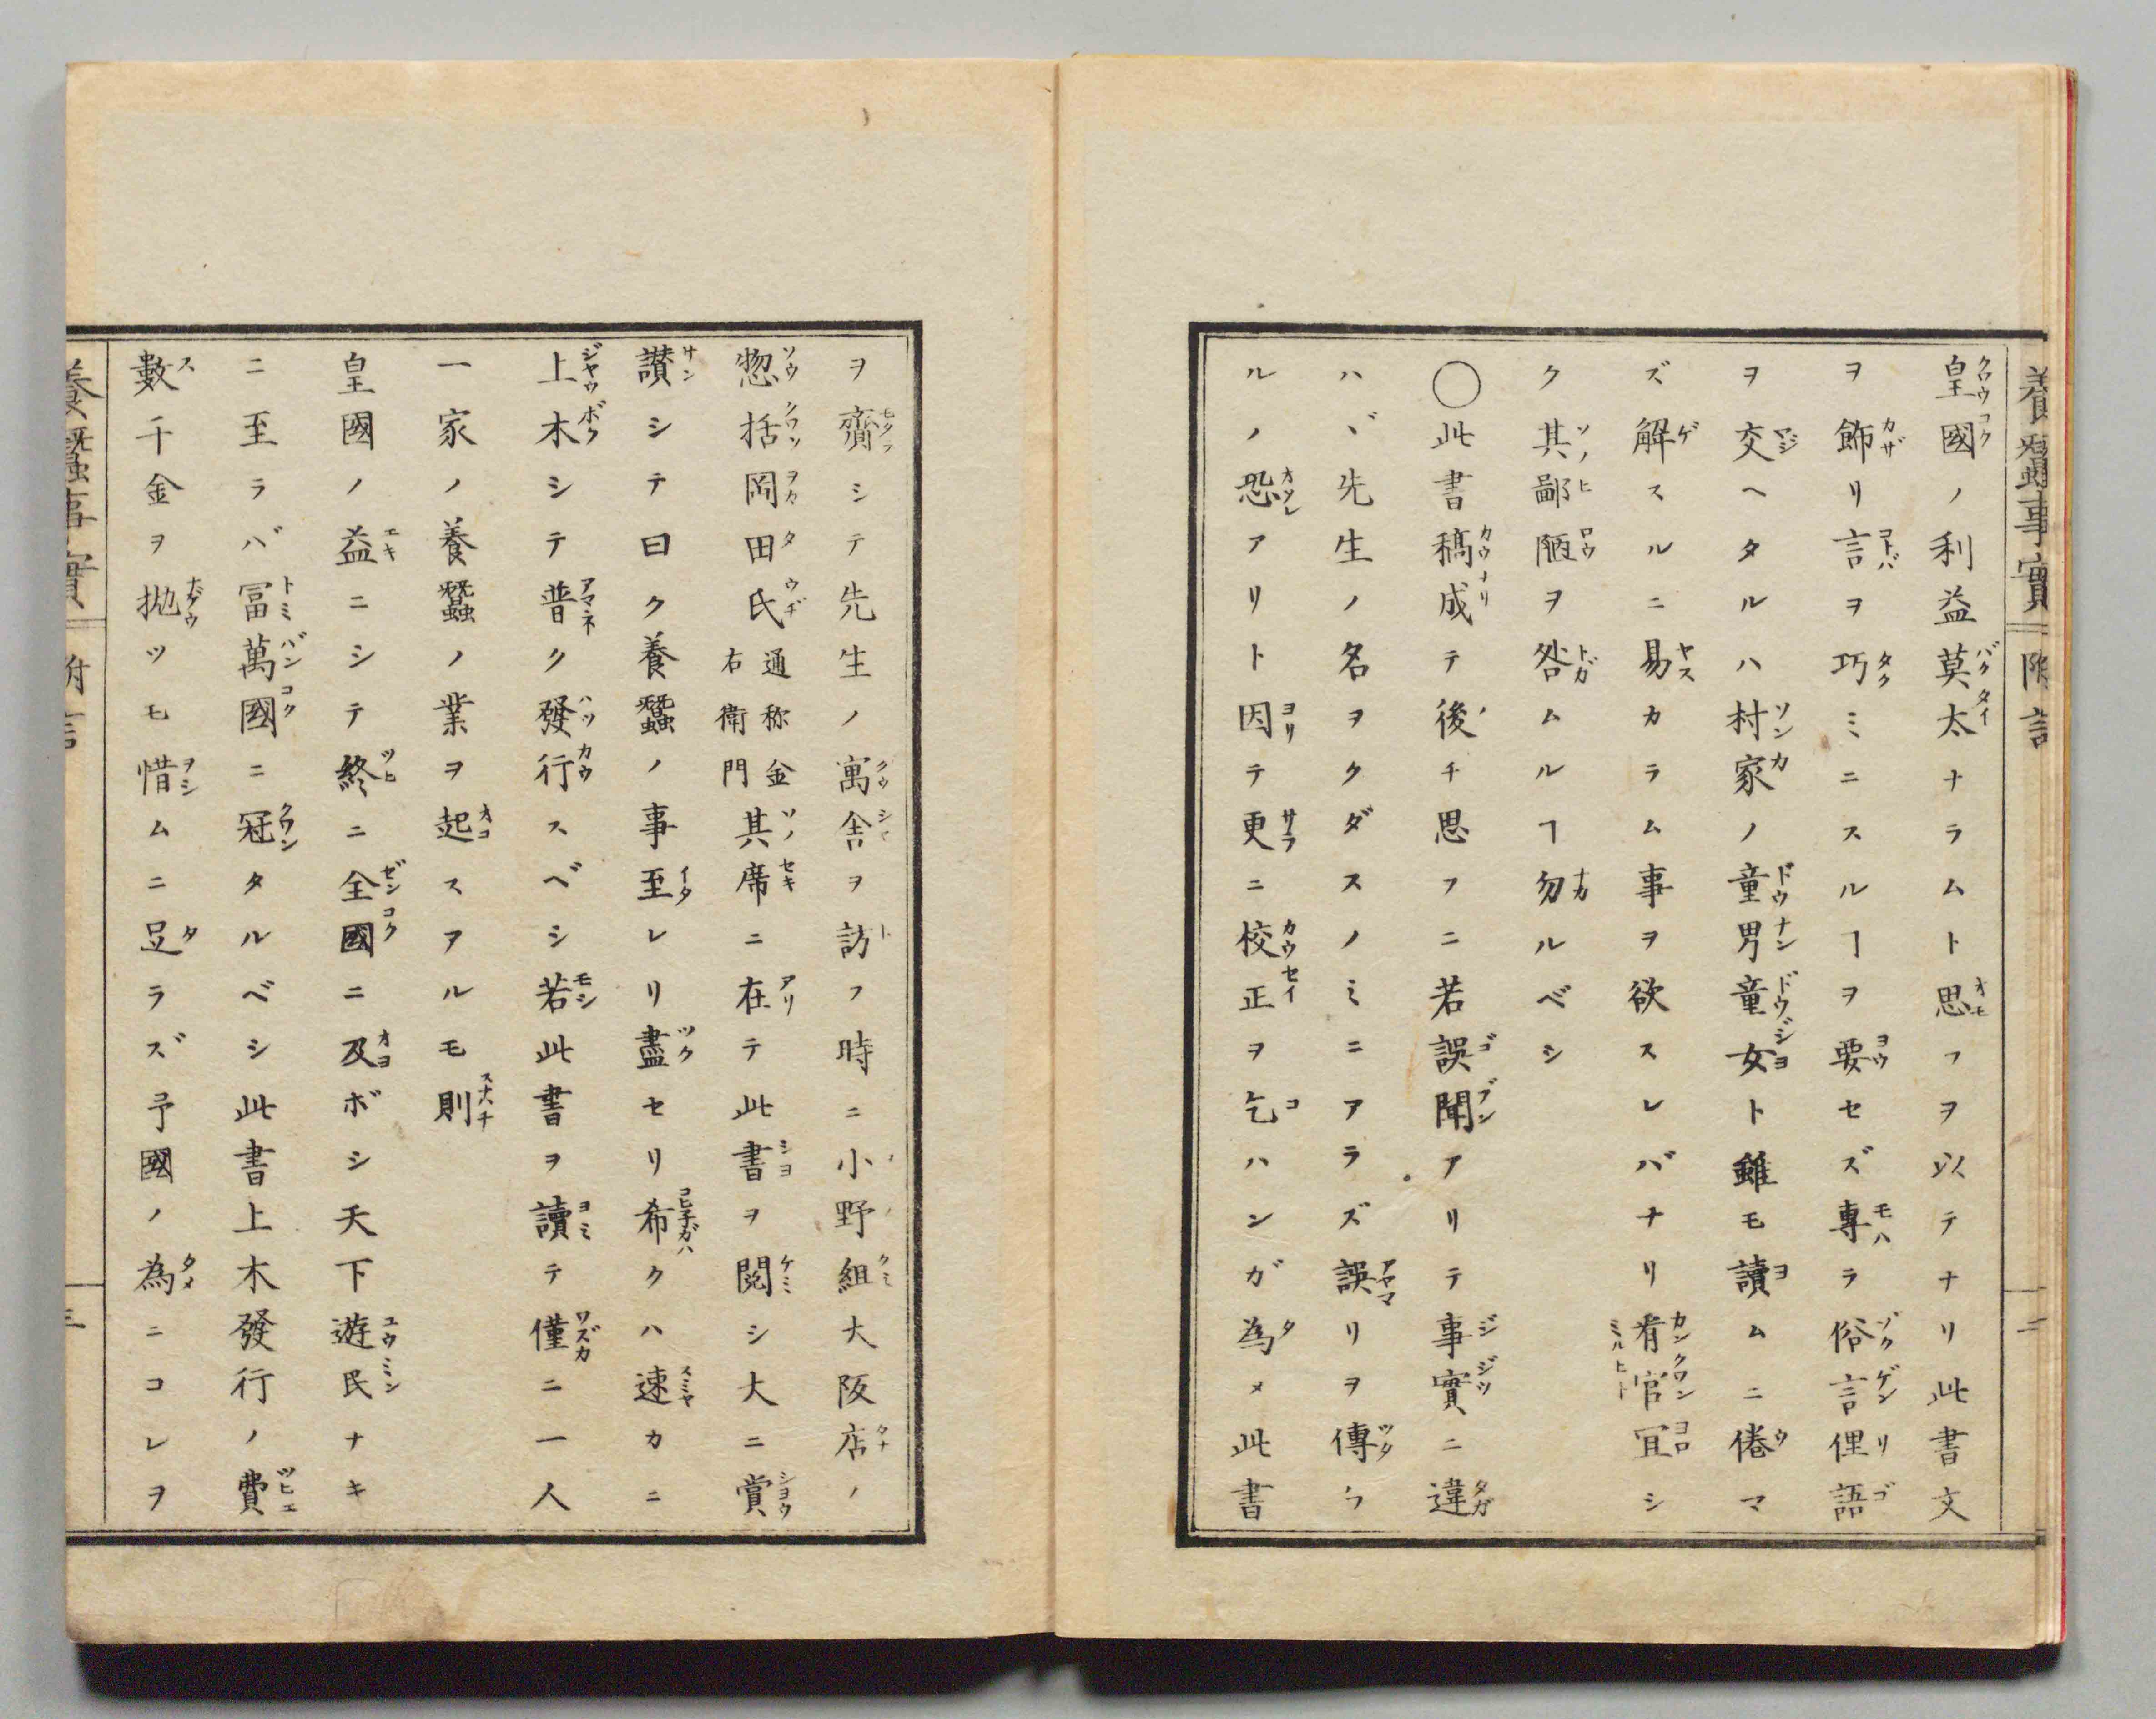 養蠶事實 附言 二
皇國ノ利益莫太ナラムト思フヲ以テナリ此書文
ヲ飾リ言ヲ巧ミニスルヿヲ要セズ專ラ俗言俚語
ヲ交ヘタルハ村家ノ童男童女ト雖モ讀ムニ倦マ
ズ解スルニ易カラム事ヲ欲スレバナリ看官冝シ
ク其鄙陋ヲ咎ムルヿ勿ルベシ
○此書稿成テ後チ思フニ若誤聞アリテ事實ニ違
ハヾ先生ノ名ヲクダスノミニアラズ誤リヲ傳フ
ルノ恐アリト因テ更ニ校正ヲ乞ハンガ為メ此書
ヲ齎シテ先生ノ寓舎ヲ訪フ時ニ小野組大阪店ノ
惣括岡田氏通称金右衛門其席ニ在テ此書ヲ閲シ大ニ賞
讃シテ曰ク養蠶ノ事至レリ盡セリ希クハ速カニ
上木シテ普ク發行スベシ若此書ヲ讀テ僅ニ一人
一家ノ養蠶ノ業ヲ起スアルモ則
皇國ノ益ニシテ終ニ全國ニ及ボシ天下遊民ナキ
ニ至ラバ冨萬國ニ冠タルベシ此書上木發行ノ費
數千金ヲ抛ツモ惜ムニ足ラズ予國ノ為ニコレヲ
養蠶事實 附言 三